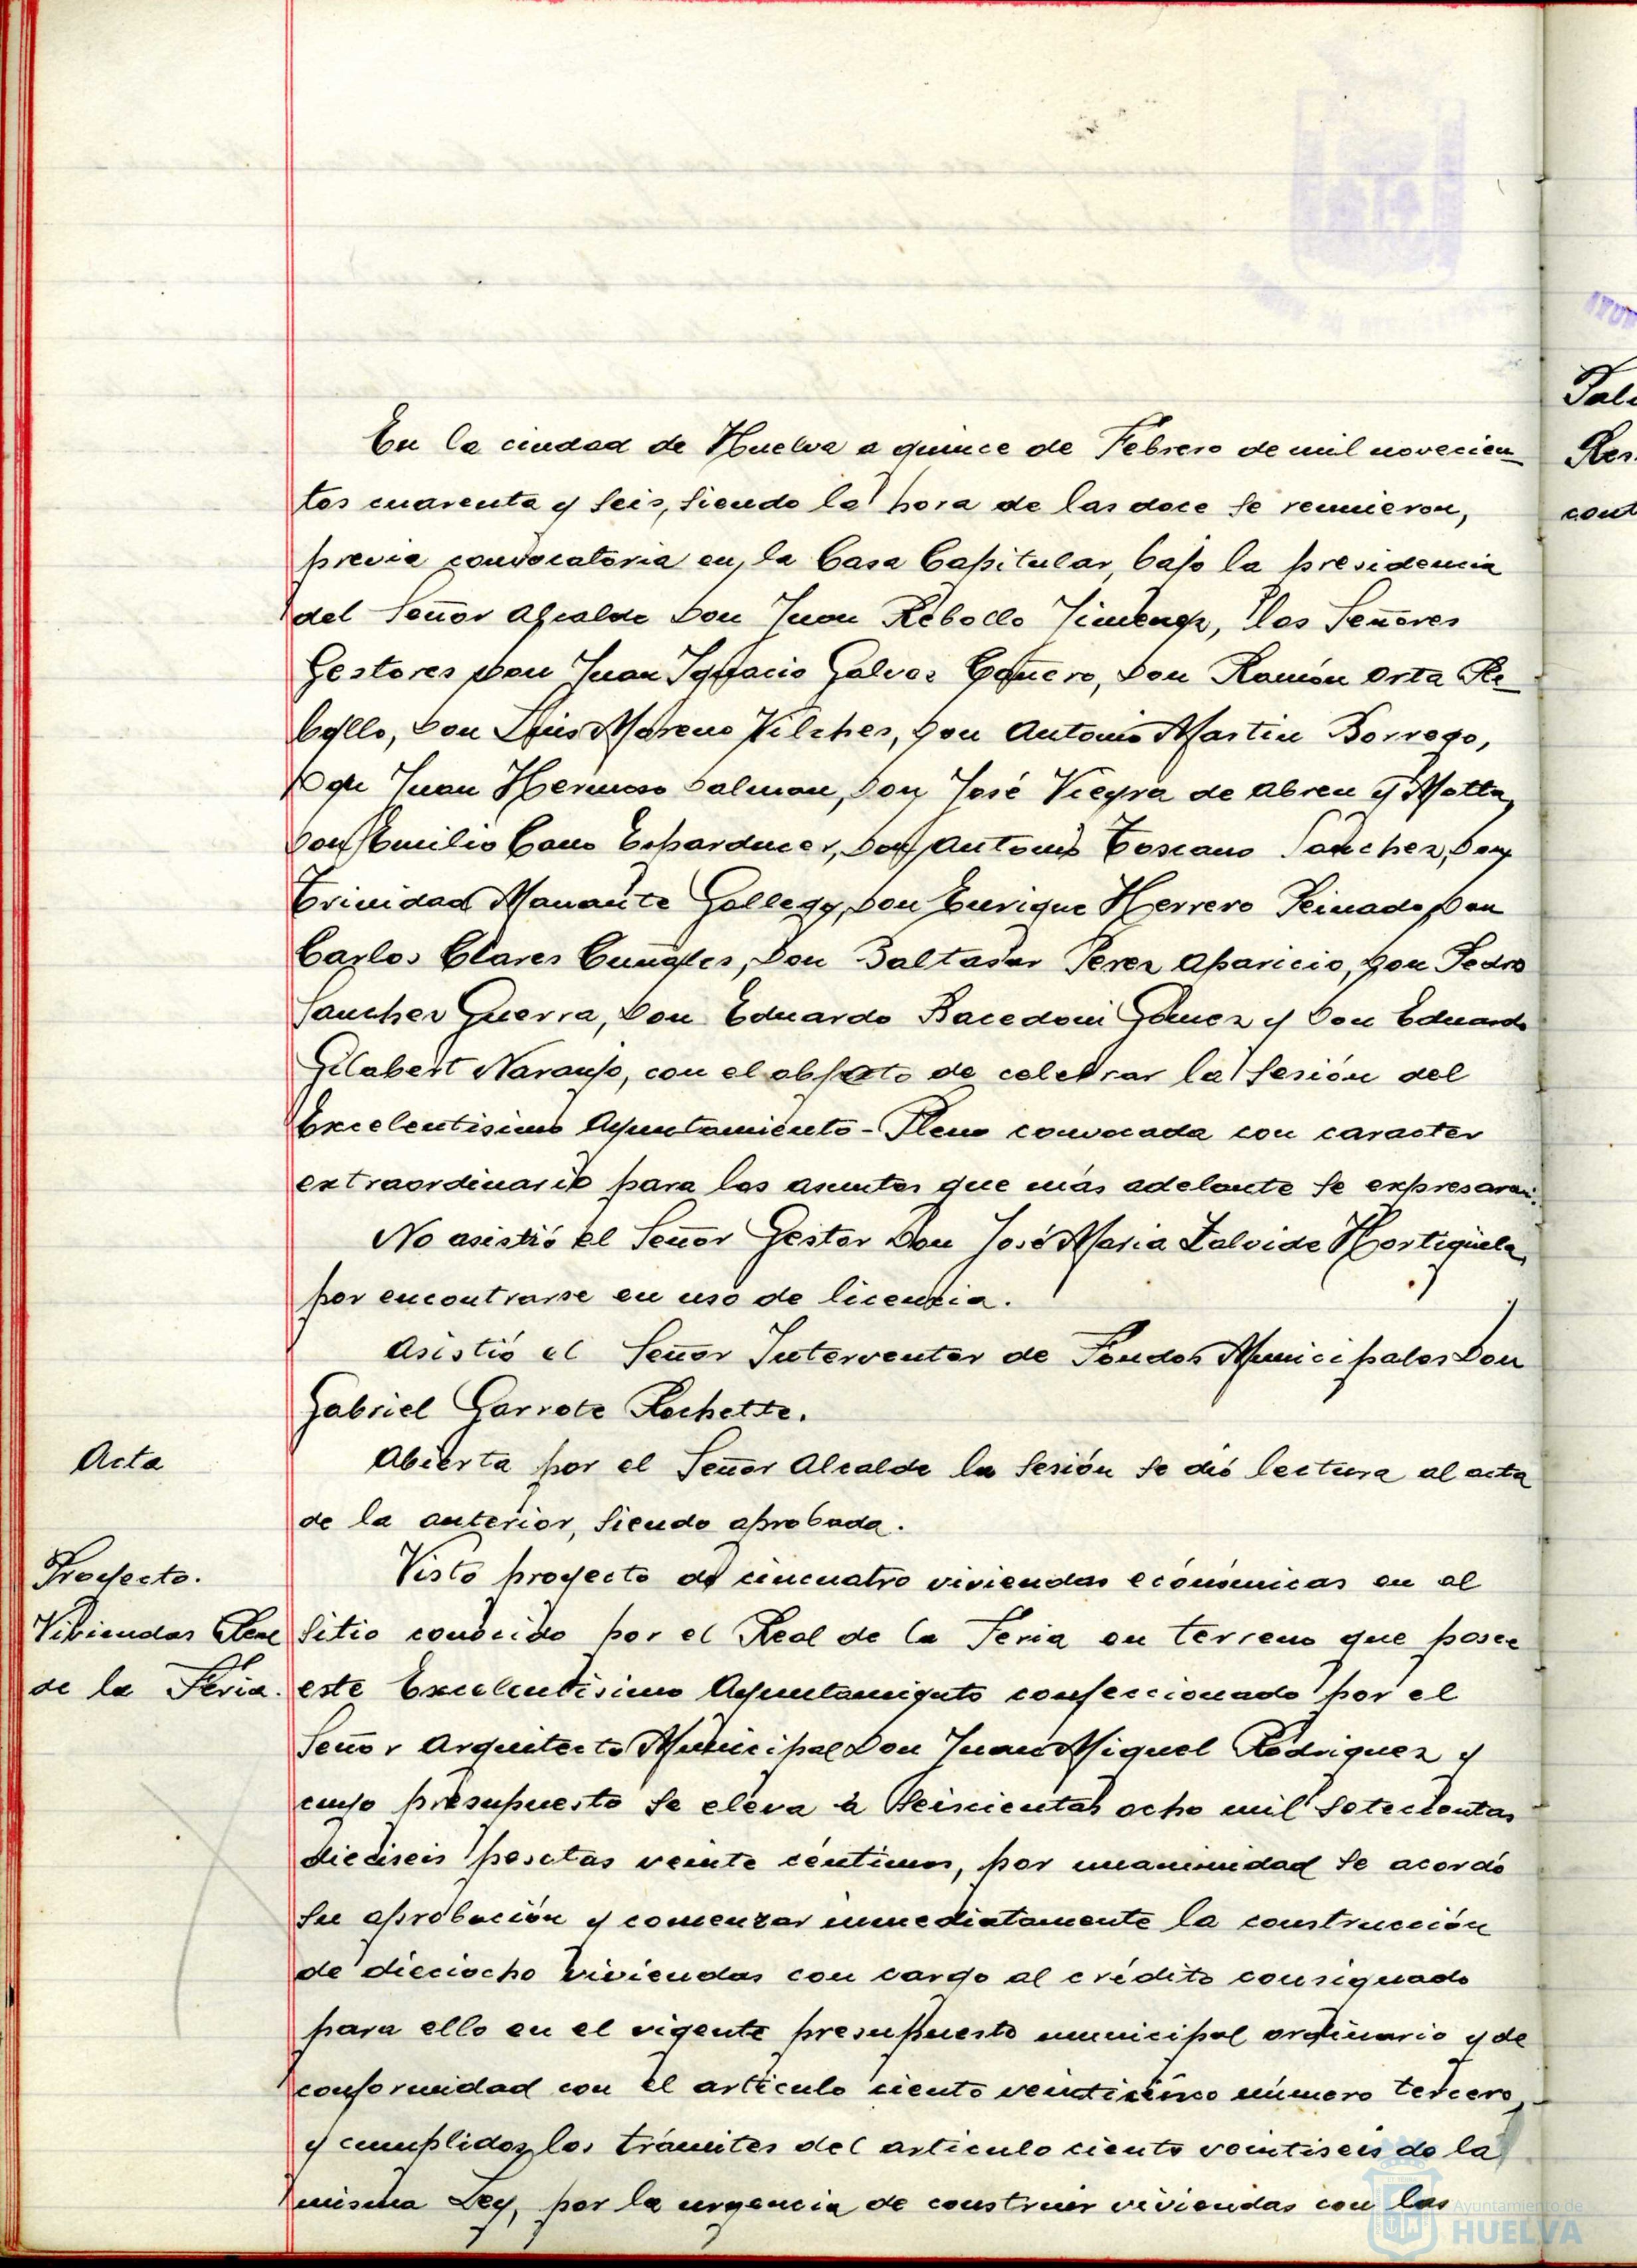 En la ciudad de Huelva a quince de Febrero de mil novecien-
tos cuarenta y seis, siendo la hora de las doce se reunieron,
previa convocatoria en la Casa Capitular, bajo la presidencia
del Señor Alcalde Don Juan Rebollo Jimenez, los Señores
Gestores Don Juan Ignacio Galvez Cañero, Don Ramón Orta Re-
bollo, Don Luis Moreno Vilches, Don Antonio Martin Borrego,
Don Juan Hermoso Dalmau, Don José Vieyra de Abreu y Motta,
Don Emilio Cano Don Antonio Toscano Sanchez, Don
Trinidad Manante Gallego, Don Enrique Herrero Peinado, Don
Carlos Clares Don Baltasar Perez Aparicio, Don Pedro
Sanchez Guerra, Don Eduardo Bacedoni Gómez y Don Eduardo
Gilabert Naranjo, con el objeto de celebrar la sesión del
Excelentisimo Ayuntamiento-Pleno convocada con caracter
extraordinario para los asuntos que más adelante se expresaran.
No asistió el Señor Gestor Don José Maria Zalvide Hortigüela,
por encontrarse en uso de licencia.
Asistió el Señor Interventor de Fondos Municipales Don
Gabriel Garrote Rochette.
Acta
Abierta por el Señor Alcalde la sesión se dió lectura al acta
de la anterior, siendo aprobada.
Proyecto.
Viviendas Real
de la Feria.
Visto proyecto de viviendas económicas en el
sitio conocido por el Real de la Feria en terreno que posee
este Excelentisimo Ayuntamiento confeccionado por el
Señor Arquitecto Municipal Don Juan Miguel Rodriguez y
cuyo presupuesto se eleva a seiscientas ocho mil setecientas
dieciseis pesetas veinte céntimos, por unanimidad se acordó
su aprobación y comenzar inmediatamente la construcción
de dieciocho viviendas con cargo al crédito consignado
para ello en el vigente presupuesto municipal ordinario y de
conformidad con el articulo ciento veinticinco número tercero,
y cumplidos los trámites del articulo ciento veintiseis de la
misma Ley, por la urgencia de construir viviendas con las
Ayuntamiento de
HUELVA